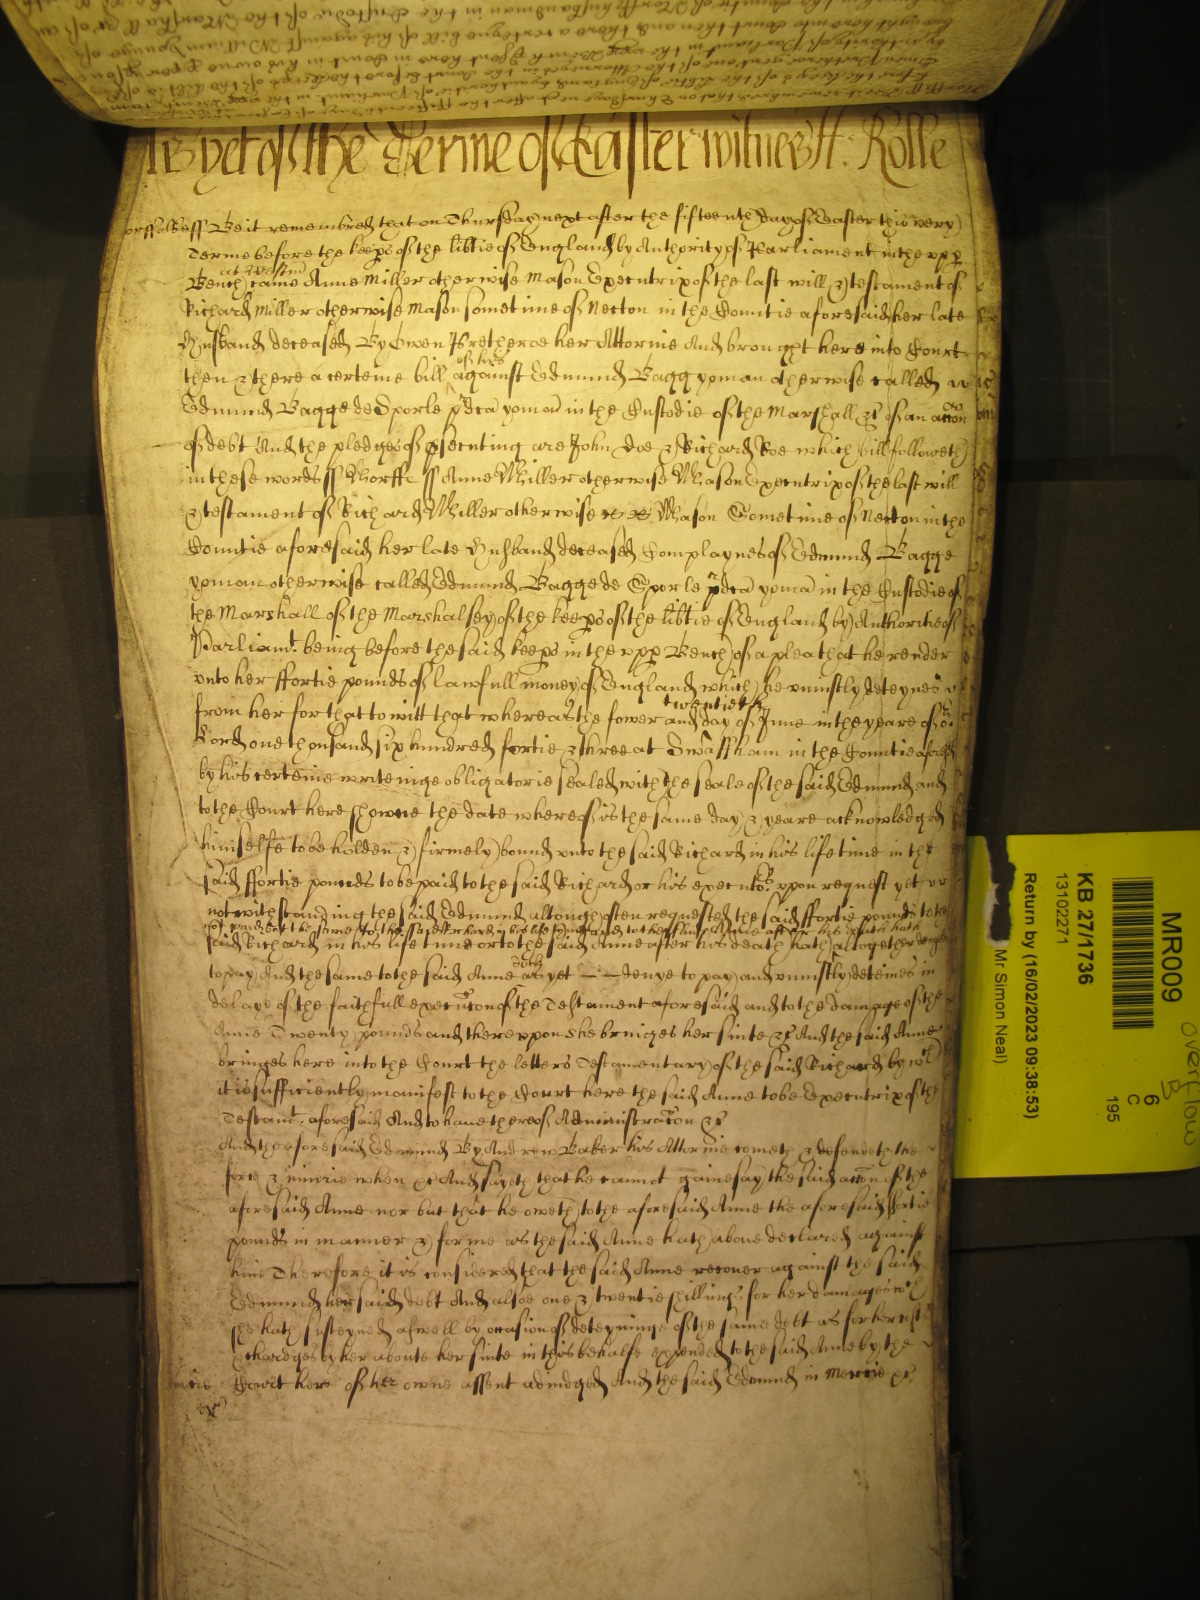 As yet of the Terme of Easter witnes H: Rolle
Norffolke ss Be it remembred that on Thursday next after the fifteenth day of Easter this very
Terme before the keeps of the libtie of England by Authority of Parliament in the upp
Bench at Westm came Anne Miller otherwise Mason Executrix of the last will & testament of
Richard Miller otherwise Mason sometime of Necton in the Countie aforesaid her late
Husband deceased By Owen Pretheroe her Attornie And brought here into Court
then & there a certeine bill of his against Edmund Bagg yoman otherwise called
Edmund Bagge de Sporle pdca yoman in the Custodie of the Marshall &c of an accon
of debt And the pledges of psecuting are John Doe & Richard Roe which bill followeth
in these words ss Norff ss Anne Miller otherwise Mason Executrix of the last will
& testament of Richard Miller otherwise Mason Sometime of Necton in the
Countie aforesaid her late Husband deceased Complaynes of Edmund Bagge
yoman otherwise called Edmund Bagge de Sporle pdca yoma in the Custodie of
the Marshall of the Marshalsey of the keeps of the libtie of England by Authoritie of
Parliamt. being before the said keeps in the upp Bench of a plea that he render
unto her ffortie pounds of lawfull money of England which he uniustly deteynes
from her for that to witt that whereas the fower and twentieth day of June in the yeare of or
Lord one thousand six hundred fortie & three at Swaffham in the Countie aforesd
by his certeine writeinge obligatorie sealed with the seale of the said Edmund and
to the Court here showne the date whereof is the same day & yeare acknowledged
himselfe to be holden & firmely bound unto the said Richard in his life time in the
said ffortie pounds to be paid to the said Richard or his executors upon request yet
notwithstanding the said Edmund althugh often requested the said ffortie pounds to the
said Richard in his life time or to the said Anne after his death hath altogether
to pay And the same to the said Anne doth as yet — — denye to pay and uniustly deteines in
delaye of the faithfull execucon of the Testament aforesaid and to the damage of the
Anne Twenty pounds and thereuppon she bringes her suite &c And the said Anne
bringes here into the Court the letters Testamentary of the said Richard by wch
it is sufficiently manifest to the Court here the said Anne to be Executrix of the
Testamt. aforesaid And to have thereof Administracon &c
And the aforesaid Edmund By Andrew Baker his Attornie cometh & defendeth the
force & iniurie when &c And sayeth that he cannot gainesay the said accon of the
aforesaid Anne nor but that he oweth to the aforesaid Anne the aforesaid ffortie
pounds in manner & forme as the said Anne hath above declared against
him Therefore it is considered that the said Anne recover against the said
Edmund her said debt And alsoe one & twentie shillings for her damages wch
she hath susteyned aswell by occasion of deteyninge of the same debt as for her costs
& chardges by her aboute her suite in this behalfe expended to the said Anne by the
Court here of her owne assent adiudged And the said Edmund in mercie &c
mcie
MR009
KB 27/1736
13102271
Return by (16/02/2023 09:38:53)
Mr. Simon Neal)
6
C
195
overflow
B